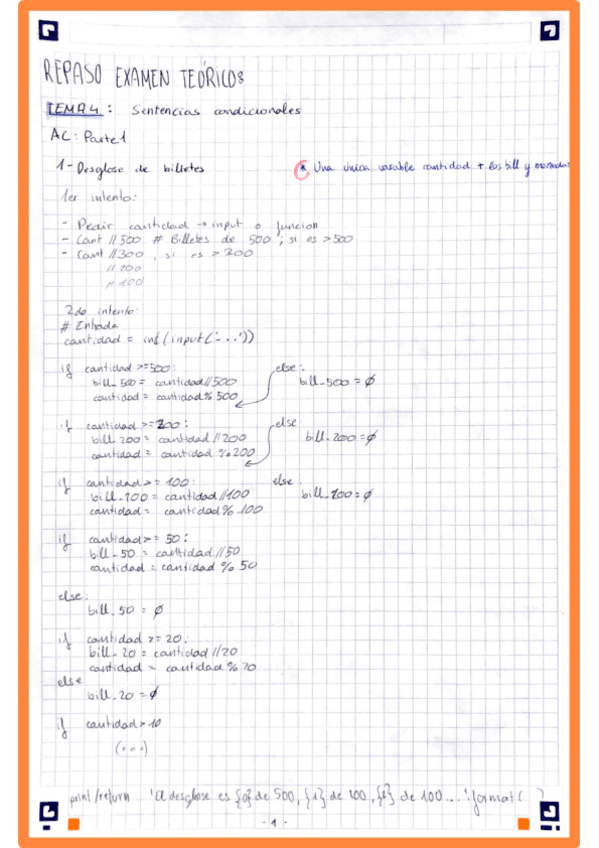 REPASO EXAMEN TEÓRICO:
TEMA 4: Sentencias condicionales
AC: Parte 1
1- Desglose de billetes
* Una única variable cantidad + los bill y monedas
1er intento:
- Pedir cantidad → input o funcion
- Cant //500 # Billetes de 500, si es >500
- Cant //300, si es >200
//200
//100
2do intento:
# Entrada
cantidad = int(input('...'))
if cantidad >=500:
bill_500 = cantidad//500
cantidad = cantidad % 500
else:
bill_500 = ∅
if cantidad >=200:
bill_200 = cantidad //200
cantidad = cantidad %200
else
bill_200 = ∅
if cantidad >= 100:
bill_100 = cantidad//100
cantidad = cantidad % 100
else:
bill_100 = ∅
if cantidad >= 50:
bill_50 = cantidad //50
cantidad = cantidad % 50
else:
bill_50 = ∅
if cantidad >= 20:
bill_20 = cantidad //20
cantidad = cantidad %20
else
bill_20 = ∅
if cantidad > 10
(...)
print/return 'El desglose es {0} de 500, {1} de 200, {2} de 100...'.format( )
- 1 -